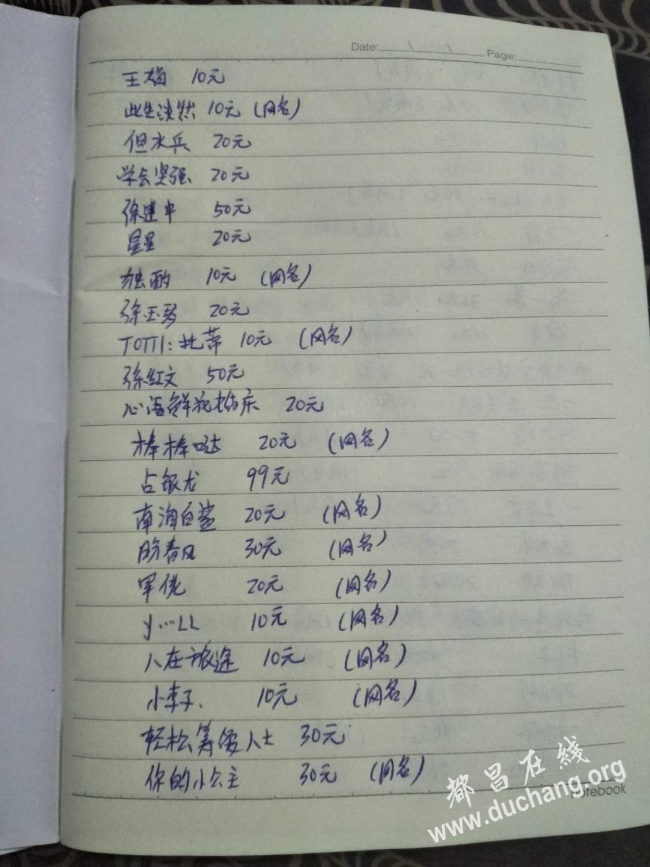 Date: \ \ Page:
王梅 10元
此生淡然 10元 (网名)
但水兵 20元
学会坚强 20元
徐建中 50元
星星 20元
独酌 10元 (网名)
徐玉琴 20元
TOTTI:托蒂 10元 (网名)
张红文 50元
心语鲜花 20元
棒棒哒 20元 (网名)
占银龙 99元
南海白鲨 20元 (网名)
春风 30元 (网名)
军佬 20元 (网名)
y...LL 10元 (网名)
人在旅途 10元 (网名)
小李子. 10元 (网名)
轻松筹爱人士 30元
你的小公主 30元 (网名)
notebook
都昌在线
www.duchang.org